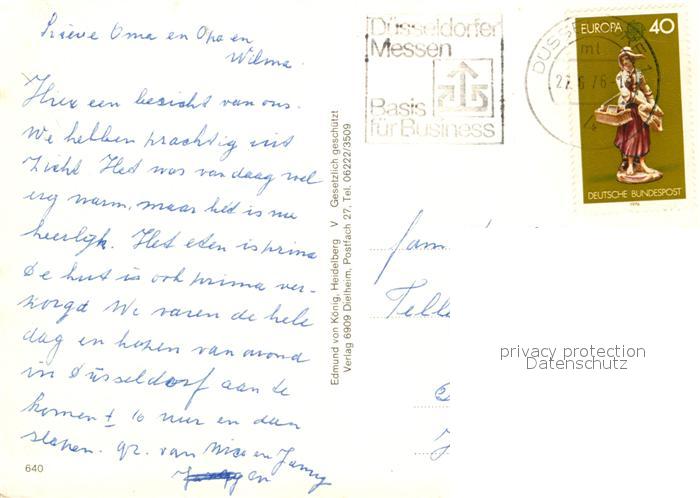 Lieve Oma en Opa en
Wilma.
Hier een bericht van ons.
We hebben prachtig uit
zicht Het was vandaag wel
erg warm, maar het is nu
heerlijk. Het eten is prima
De hut is ook prima ver-
zorgd We varen de hele
dag en hopen van avond
in Düsseldorf aan te
komen ± 10 uur en dan
slapen. gr. van en Janny
en
640
Edmund von König, Heidelberg V Gesetzlich geschützt
Verlag 6909 Dielheim, Postfach 27, Tel. 06222/3509
Düsseldorfer
Messen
Basis
für Business
DÜSS 1
ml
22.6.76-1
EUROPA 40
DEUTSCHE BUNDESPOST
1976
fam
Telle
privacy protection
Datenschutz